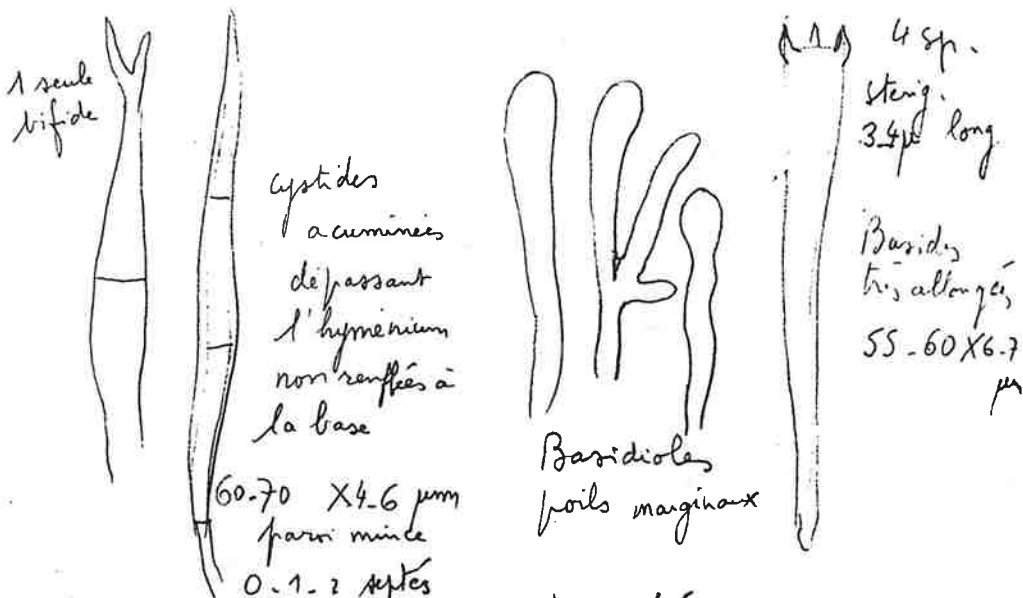 1 seule
bifide
cystides
acuminées
dépassant
l'hyménium
non renflées à
la base
60-70 X4-6 µm
paroi mince
0-1-2 septés
Basidioles
poils marginaux
4 sp.
sterig.
3-4µ long
Basides
très allongées
55-60X6-7
µm